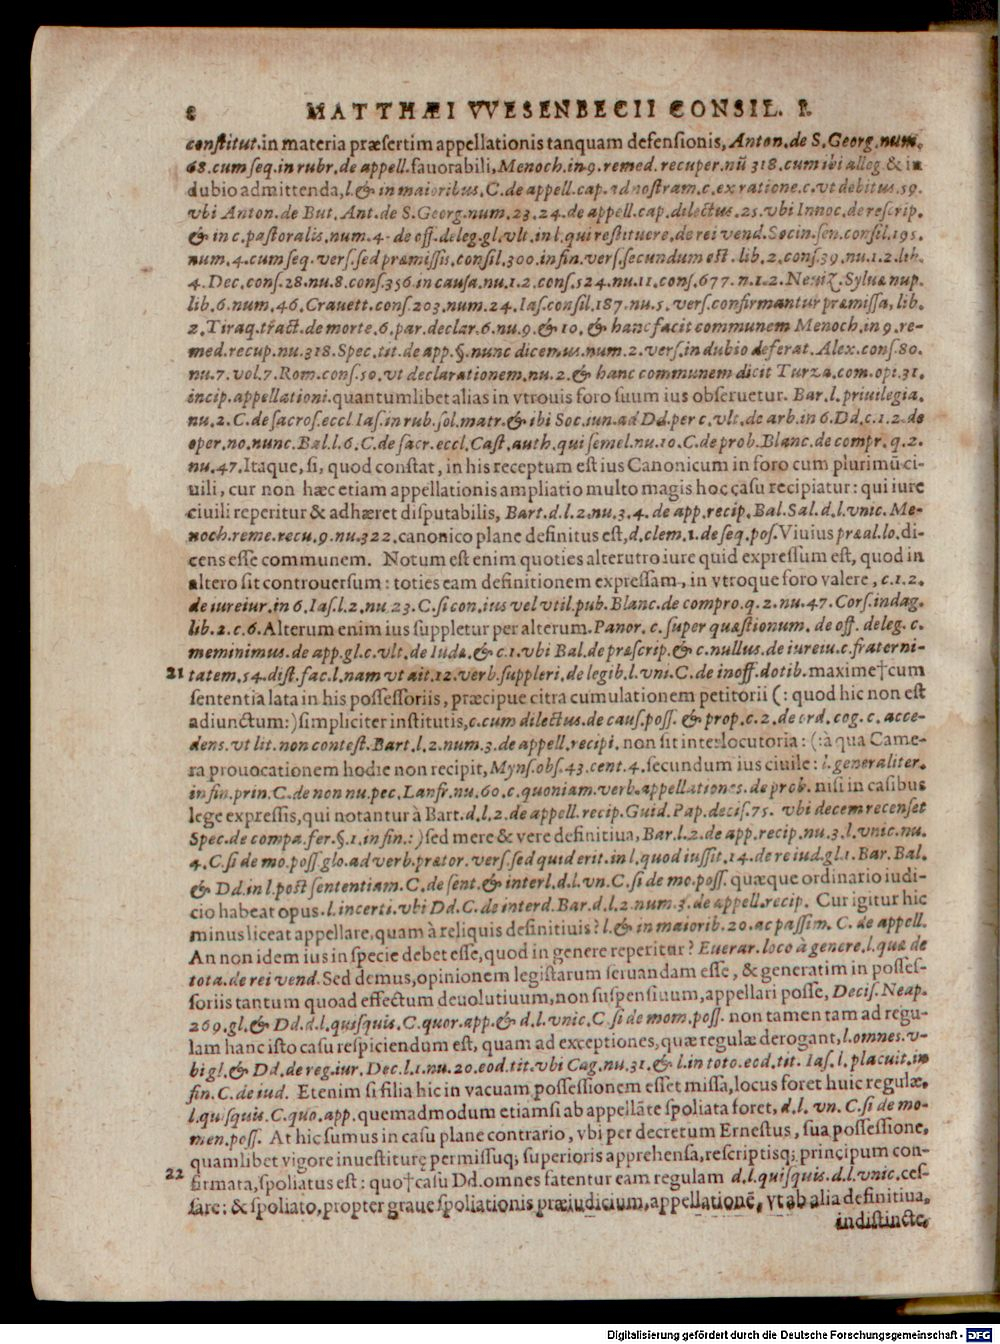 8 MATTHÆI VVESENBECII CONSIL. I.
constitut. in materia præsertim appellationis tanquam defensionis, Anton. de S. Georg. num.
68. cum seq. in rubr. de appell. fauorabili, Menoch. in 9. remed. recuper. nũ 318. cum ibi alleg & in
dubio admittenda, l. & in maioribus, C. de appell. cap. ad nostram. c. ex ratione. c. vt debitus. 59.
vbi Anton. de But. Ant. de S. Georg. num. 23. 24. de appell. cap. dilectus. 25. vbi Innoc. de rescrip.
& in c. pastoralis. num. 4. de off. deleg. gl. vlt. in l. qui restituere. de rei vend. Socin. sen. consil. 195.
num. 4. cum seq. vers. sed præmissis. consil. 300. in fin. vers. secundum est. lib. 2. cons. 39. nu. 1. 2. lib.
4. Dec. cons. 28. nu. 8. cons. 356. in causa. nu. 1. 2. cons. 524. nu. 11. cons. 677. n. 1. 2. Neuiz. Syluæ nup.
lib. 6. num. 46. Crauett. cons. 203. num. 24. Ias. consil. 187. nu. 5. vers. confirmantur præmissa, lib.
2. Tiraq. tract. de morte. 6. par. declar. 6. nu. 9. & 10. & hanc facit communem Menoch. in 9. re-
med. recup. nu. 318. Spec. tit. de app. §. nunc dicemus. num. 2. vers. in dubio deferat. Alex. cons. 80.
nu. 7. vol. 7. Rom. cons. 50. vt declarationem. nu. 2. & hanc communem dicit Turza. com. opi. 31.
incip. appellationi. quantumlibet alias in vtrouis foro suum ius obseruetur. Bar. l. priuilegia.
nu. 2. C. de sacros. eccl Ias. in rub. sol. matr. & ibi Soc. iun. ad Dd. per c. vlt. de arb. in 6. Dd. c. 1. 2. de
oper. no. nunc. Bal. l. 6. C. de sacr. eccl. Cast. auth. qui semel. nu. 10. C. de prob. Blanc. de compr. q. 2.
nu. 47. Itaque, si, quod constat, in his receptum est ius Canonicum in foro cum plurimũ ci-
uili, cur non hæc etiam appellationis ampliatio multo magis hoc casu recipiatur: qui iure
ciuili reperitur & adhæret disputabilis, Bart. d. l. 2. nu. 3. 4. de app. recip. Bal. Sal. d. l. vnic. Me-
noch. reme. recu. 9. nu. 322. canonico plane definitus est, d. clem. 1. de seq. pos. Viuius præal. lo. di-
cens esse communem. Notum est enim quoties alterutro iure quid expressum est, quod in
altero sit controuersum: toties eam definitionem expressam, in vtroque foro valere, c. 1. 2.
de iureiur. in 6. Ias. l. 2. nu 23. C. si con. ius vel vtil. pub. Blanc. de compro. q. 2. nu. 47. Cors. indag.
lib. 2. c. 6. Alterum enim ius suppletur per alterum. Panor. c. super quæstionum. de off. deleg. c.
meminimus. de app. gl. c. vlt. de Iudæ. & c. 1. vbi Bal. de præscrip. & c. nullus. de iureiu. c. fraterni-
21 tatem. 54. dist. fac. l. nam vt ait. 12. verb. suppleri. de legib. l. vni. C. de inoff. dotib. maxime†cum
sententia lata in his possessoriis, præcipue citra cumulationem petitorii (: quod hic non est
adiunctum:) simpliciter institutis, c. cum dilectus. de caus. poss. & prop. c. 2. de ord. cog. c. acce-
dens. vt lit. non contest. Bart. l. 2. num. 3. de appell. recipi. non sit interlocutoria: (: à qua Came-
ra prouocationem hodie non recipit, Myns. obs. 43. cent. 4. secundum ius ciuile: l. generaliter.
in fin. prin. C. de non nu. pec. Lanfr. nu. 60. c. quoniam. verb. appellationes. de prob. nisi in casibus
lege expressis, qui notantur à Bart. d. l. 2. de appell. recip. Guid. Pap. decis. 75. vbi decem recenset
Spec. de compa. fer. §. 1. in fin.: ) sed mere & vere definitiua, Bar. l. 2. de app. recip. nu. 3. l. vnic. nu.
4. C. si de mo. poss. glo. ad verb. prætor. vers. sed quid erit. in l. quod iussit. 14. de re iud. gl. 1. Bar. Bal.
& Dd. in l. post sententiam. C. de sent. & interl. d. l. vn. C. si de mo. poss. quæque ordinario iudi-
cio habeat opus. l. incerti. vbi Dd. C. de interd. Bar. d. l. 2. num. 3. de appell. recip. Cur igitur hic
minus liceat appellare, quam à reliquis definitiuis? l. & in maiorib. 20. ac passim. C. de appell.
An non idem ius in specie debet esse, quod in genere reperitur? Euerar. loco à genere. l. quæ de
tota. de rei vend. Sed demus, opinionem legistarum seruandam esse, & generatim in posses-
soriis tantum quoad effectum deuolutiuum, non suspensiuum, appellari posse, Decis. Neap.
269. gl. & Dd. d. l. quisquis. C. quor. app. & d. l. vnic. C. si de mom. poss. non tamen tam ad regu-
lam hanc isto casu respiciendum est, quam ad exceptiones, quæ regulæ derogant, l. omnes. v-
bi gl. & Dd. de reg. iur. Dec. l. 1. nu. 20. eod. tit. vbi Cag. nu. 31. & l. in toto. eod. tit. Ias. l. placuit. in
fin. C. de iud. Etenim si filia hic in vacuam possessionem esset missa, locus foret huic regulæ.
l. quisquis. C. quo. app. quemadmodum etiamsi ab appellãte spoliata foret, d. l. vn. C. si de mo-
men. poss. At hic sumus in casu plane contrario, vbi per decretum Ernestus, sua possessione,
quamlibet vigore inuestituræ permissuq; superioris apprehensa, rescriptisq; principum con-
22 firmata, spoliatus est: quo†casu Dd. omnes fatentur eam regulam d. l. quisquis. d. l. vnic. ces-
sare: & spoliato, propter graue spoliationis præiudicium, appellationẽ, vt ab alia definitiua,
indistincte,
Digitalisierung gefördert durch die Deutsche Forschungsgemeinschaft - DFG